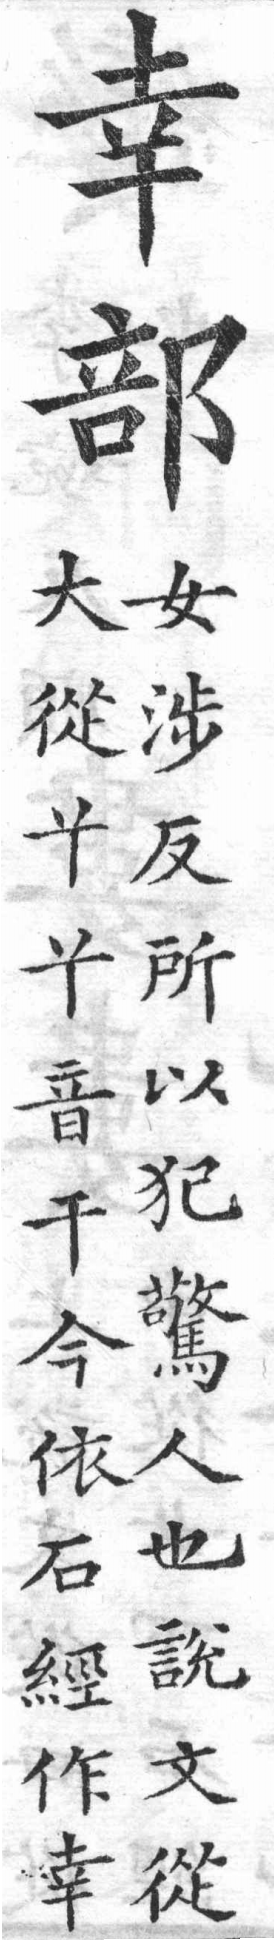 幸部
女涉反所以犯驚人也說文從
大從𢆉𢆉音干今依石經作幸